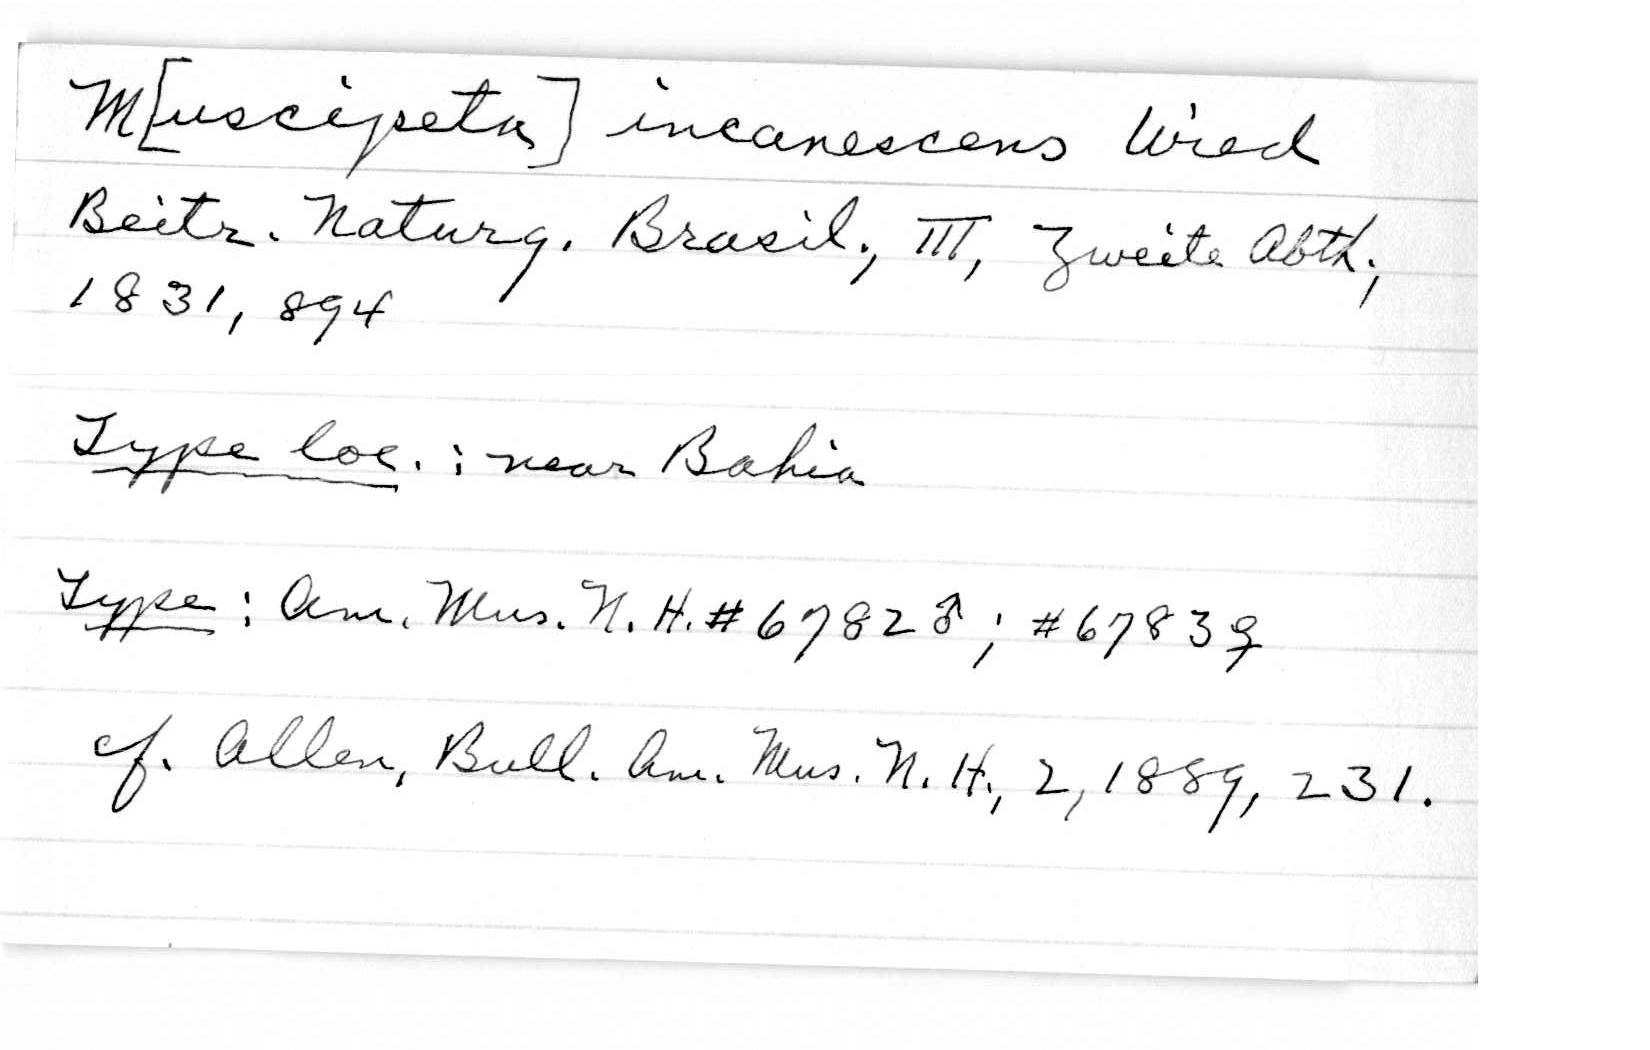 M[uscipeta] incanescens Wied
Beitr. Naturg. Brasil., III, Zweite Abth.,
1831, 894
Type loc.: near Bahia
Type: Am. Mus. N. H. #6782♂; #6783♀
cf. Allen, Bull. Am. Mus. N. H., 2, 1889, 231.